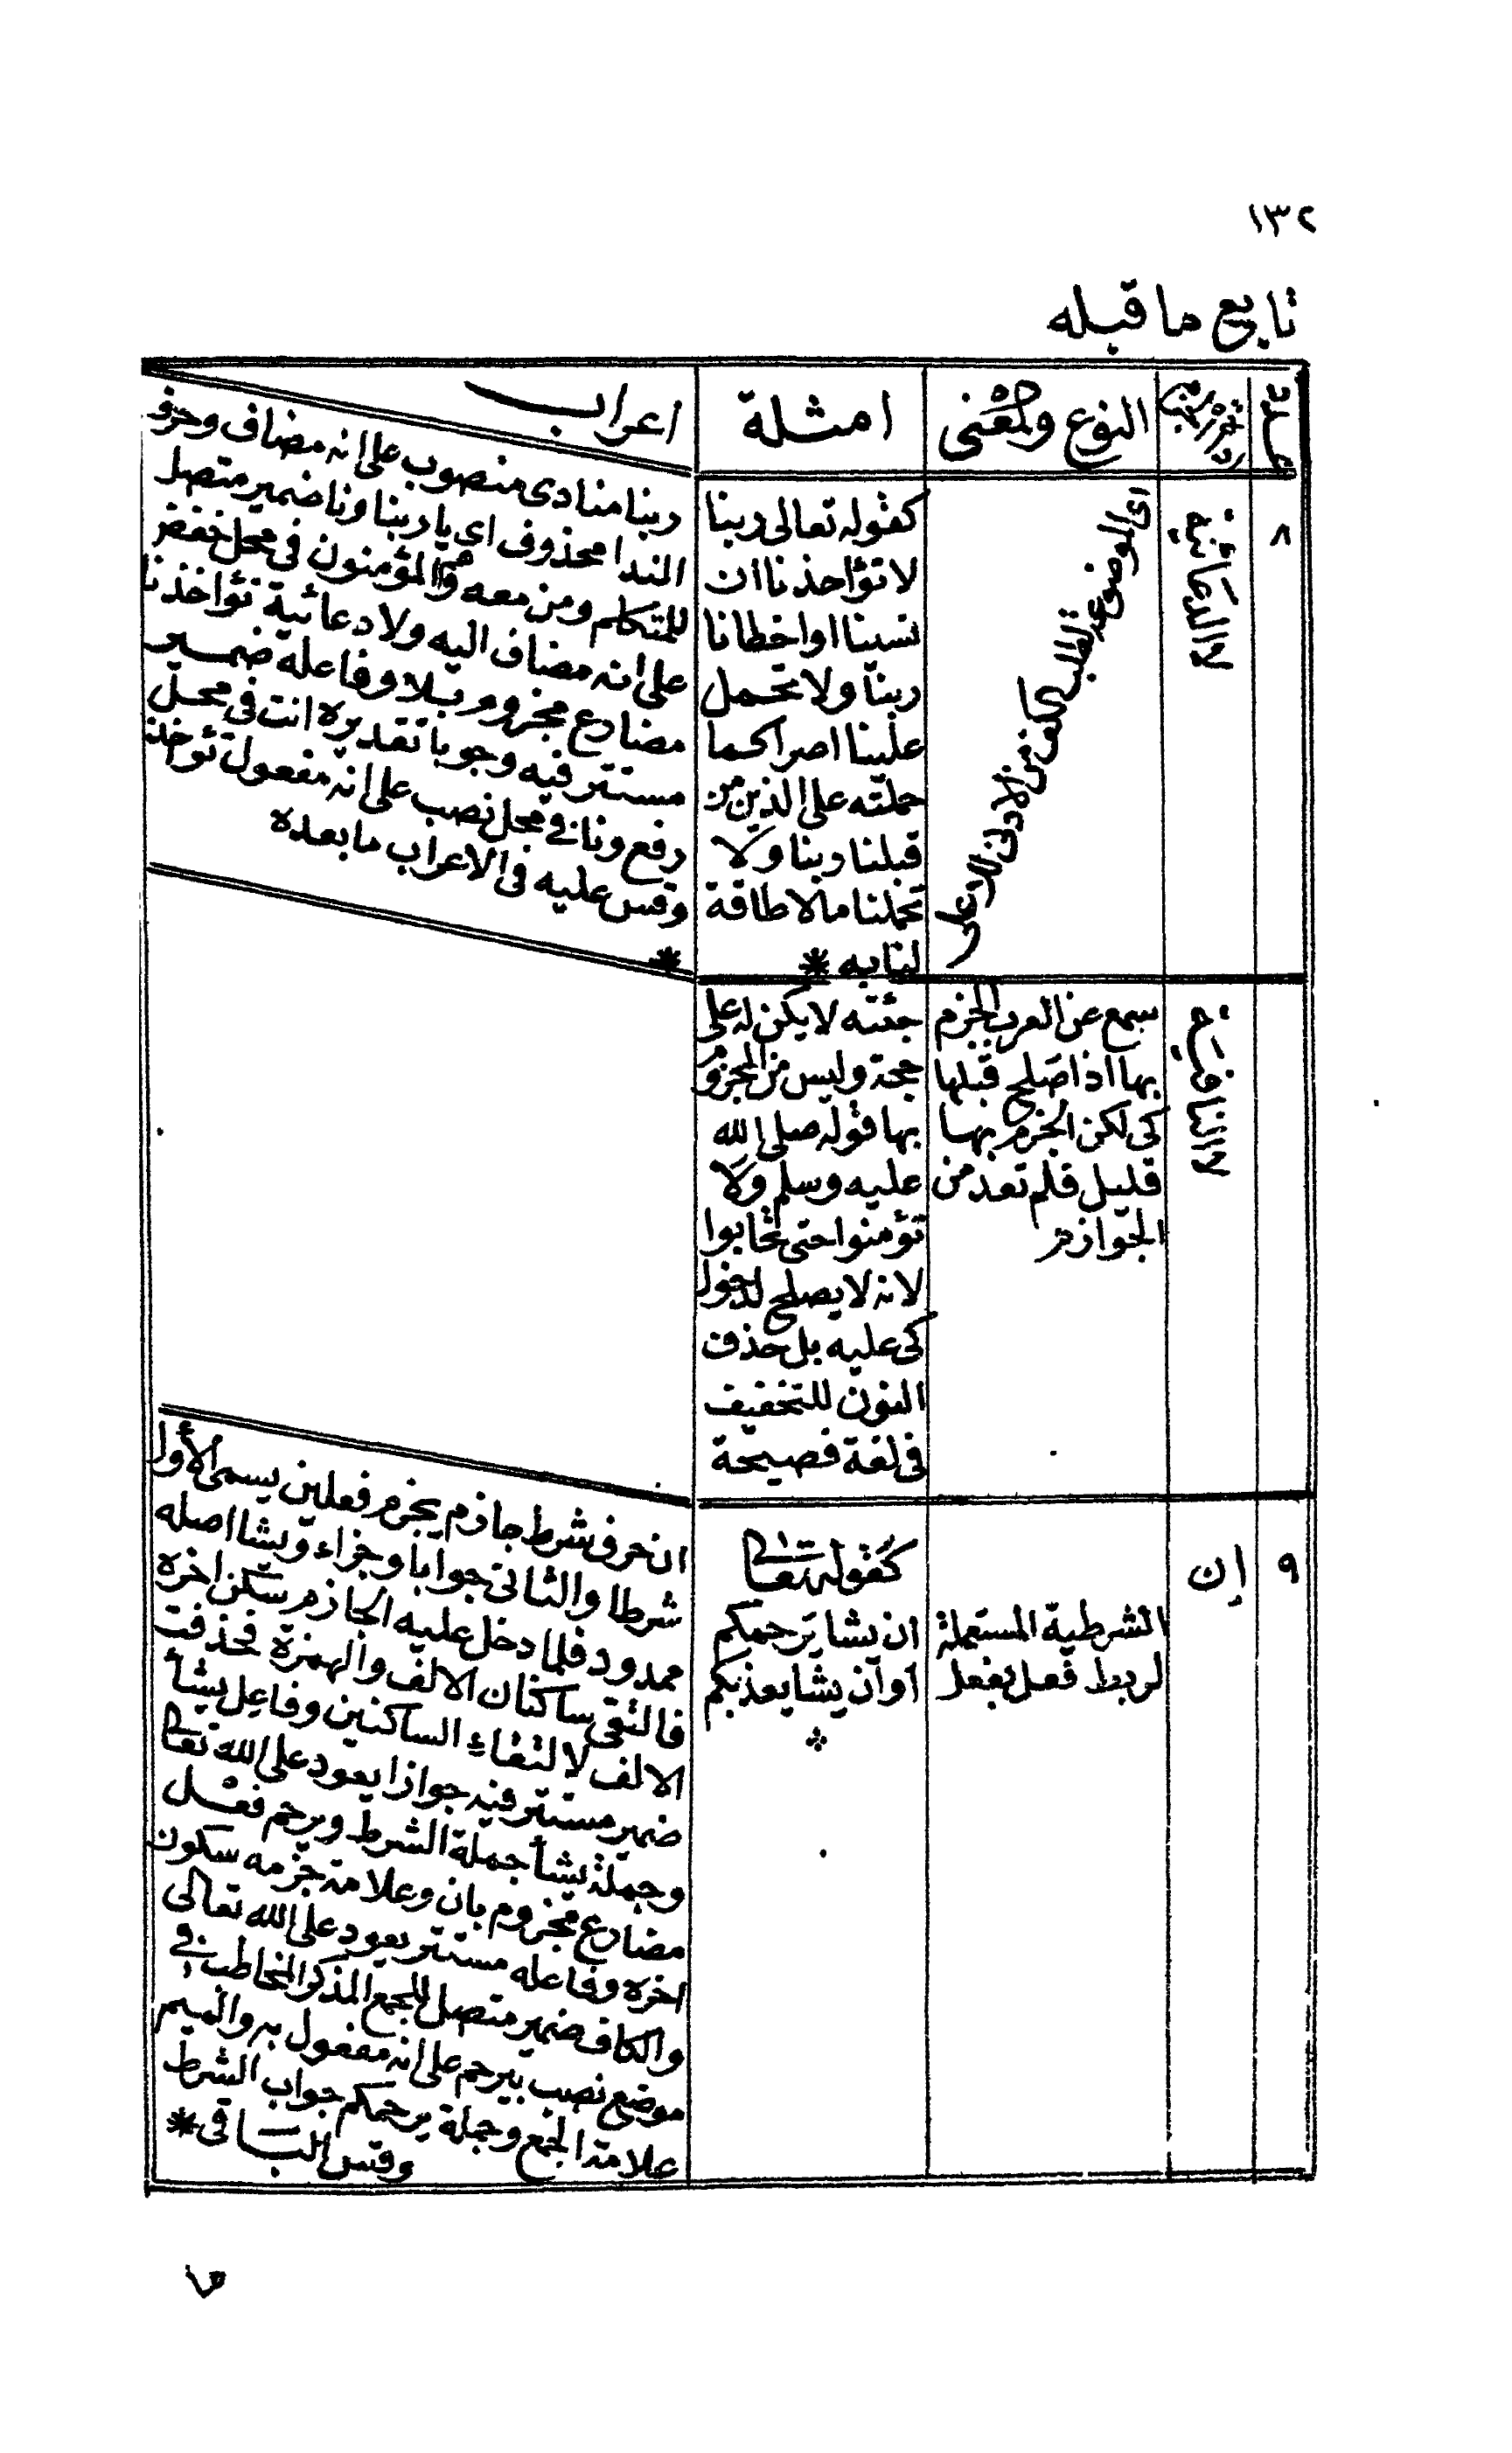 ١٣٢
تابع ما قبله
عدد
النوع والمعنى
امثلة
اعراب
٨
لا الدعائية
اى الموضوعة لطلب الكف من الادنى للاعلى
كقوله تعالى ربنا
لا تؤاخذنا ان
نسينا او اخطانا
ربنا ولا تحمل
علينا اصرا كما
حملته على الذين من
قبلنا ربنا ولا
تحملنا ما لا طاقة
لنا به *
ربنا منادى منصوب على انه مضاف وحرف
الندا محذوف اى يا ربنا ونا ضمير متصل
للمتكلم ومن معه والمؤمنون فى محل خفض
على انه مضاف اليه ولا دعائية تؤاخذنا
مضارع مجزوم بلا وفاعله ضمير
مستتر فيه وجوبا تقديره انت فى محل
رفع ونا فى محل نصب على انه مفعول تؤاخذنا
وقس عليه فى الاعراب ما بعده
*
لا النافية
سمع عن العرب الجزم
بها اذا صلح قبلها
كى لكن الجزم بها
قليل فلم تعد من
الجوازم
جئته لا يكن له على
حجة وليس من المجزوم
بها قوله صلى الله
عليه وسلم ولا
تؤمنوا حتى تحابوا
لانه لا يصلح لدخول
كى عليه بل حذف
النون للتخفيف
فى لغة فصيحة
٩
إن
الشرطية المستعملة
لربط فعل بفعل
كقوله تعالى
ان يشا يرحمكم
او ان يشا يعذبكم
ان حرف شرط جازم يجزم فعلين يسمى الأول
شرطا والثانى جوابا وجزاء ويشا اصله
ممدود فلما دخل عليه الجازم سكن اخره
فالتقى ساكنان الالف والهمزة فحذفت
الالف لالتقاء الساكنين وفاعل يشأ
ضمير مستتر فيه جوازا يعود على الله تعالى
وجملة يشأ جملة الشرط ويرحم فعل
مضارع مجزوم بان وعلامة جزمه سكون
اخره وفاعله مستتر يعود على الله تعالى
والكاف ضمير متصل للجمع المذكر المخاطب فى
موضع نصب بيرحم على انه مفعول به والميم
علامة الجمع وجملة يرحمكم جواب الشرط
وقس الباقى *